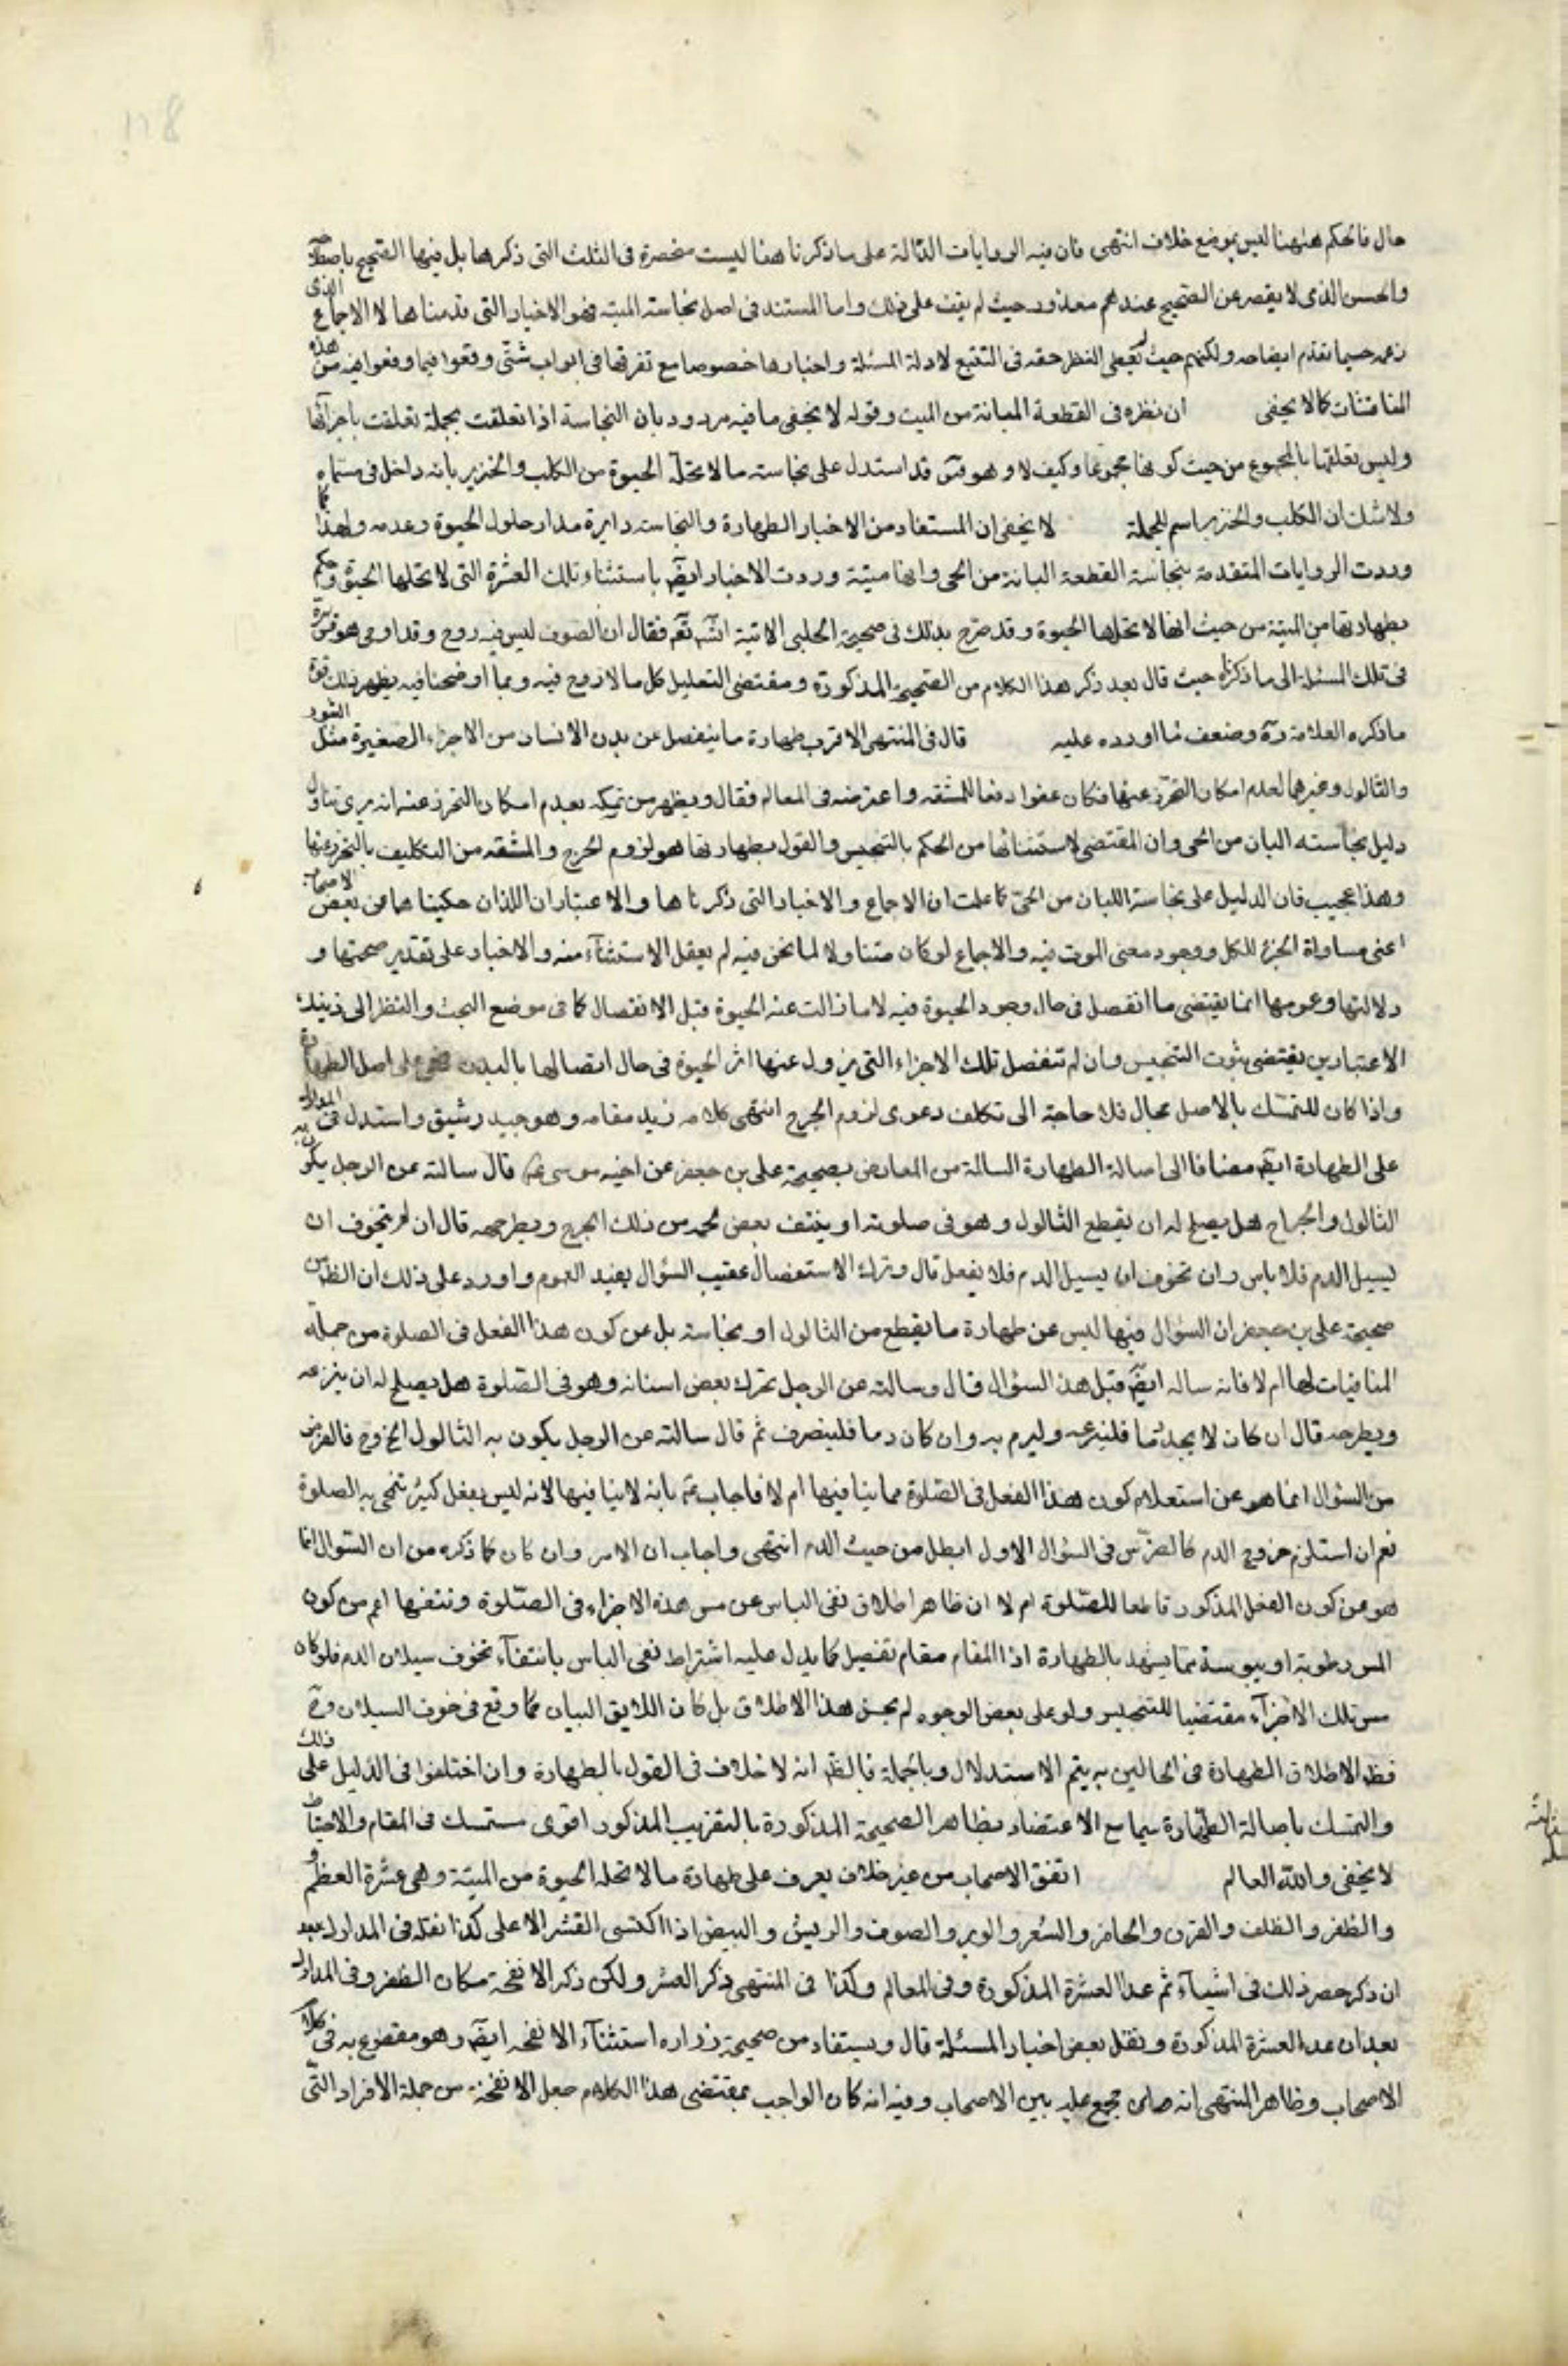 حال فالحكم ههنا ليس بموضع خلاف انتهى فان فيه الروايات الدالة على ما ذكرنا هنا ليست منحصرة في الثلث التي ذكرها بل فيها الصحيح باصطلاحه
والحسن الذي لا يقصر عن الصحيح عندهم معذور حيث لم يقف على ذلك واما المستند في اصل نجاسة الميتة فهو الاخبار التي قدمناها لا الاجماع الذي
زعمه حسبما تقدم ايضاحه ولكنهم حيث لم يعط النظر حقه في التتبع لادلة المسئلة واخبارها خصوصا مع تفرقها في ابواب شتى وقعوا فيما وقعوا فيه من هذه
المناقشات كما لا يخفى ان نظره في القطعة المبانة من الميت وقوله لا يخفى ما فيه مردود بان النجاسة اذا تعلقت بجملة تعلقت باجزائها
وليس تعلقها بالمجموع من حيث كونها مجموعا وكيف لا وهو قد استدل على نجاسة ما لا تحله الحيوة من الكلب والخنزير بانه داخل في مسماه
ولا شك ان الكلب والخنزير اسم للجملة لا يخفى ان المستفاد من الاخبار الطهارة والنجاسة دايرة مدار حلول الحيوة وعدمه ولهذا كما
وردت الروايات المتقدمة بنجاسة القطعة المبانة من الحي وانها ميتة وردت الاخبار ايضا باستثناء تلك العشرة التي لا تحلها الحيوة وحكم
بطهارتها من الميتة من حيث انها لا تحلها الحيوة وقد صرح بذلك في صحيحة الحلبي الاتية انشـ تعـ فقال ان الصوف ليس فيه روح وقد اومى هو
في تلك المسئلة الى ما ذكرناه حيث قال بعد ذكر هذا الكلام من الصحيحة المذكورة ومقتضى التعليل كل ما لا روح فيه وبما اوضحنا فيه يظهر لك قوة
ما ذكره العلامة رة وضعف ما اورده عليه قال في المنتهى الاقرب طهارة ما ينفصل عن بدن الانسان من الاجزاء الصغيرة مثل البثور
والثالول وغيرها لعدم امكان التحرز عنها فكان عفوا دفعا للمشقة واعترضه في المعالم فقال ويظهر من تمسكه بعدم امكان التحرز عنه انه يرى تناول
دليل نجاسة المبان من الحي وان المقتضي لاستثنائها من الحكم بالتنجيس والقول بطهارتها هو لزوم الحرج والمشقة من التكليف بالتحرز عنها
وهذا عجيب فان الدليل على نجاسة المبان من الحي كما علمت ان الاجماع والاخبار التي ذكرناها والاعتباران اللذان حكيناهما عن بعض الاصحاب
اعني مساواة الجزء للكل ووجود معنى الموت فيه والاجماع لو كان متناولا لما نحن فيه لم يعقل الاستثناء منه والاخبار على تقدير صحتها و
دلالتها وعمومها انما يقتضي ما انفصل في حال وجود الحيوة فيه لا ما زالت عنه الحيوة قبل الانفصال كما في موضع البحث والنظر الى ذينك
الاعتبارين يقتضي ثبوت التنجيس وان لم تنفصل تلك الاجزاء التي يزول عنها اثر الحيوة في حال اتصالها بالبدن فهي على اصل الطهارة
واذا كان للتمسك بالاصل مجال فلا حاجة الى تكلف دعوى لزوم الحرج انتهى كلامه زيد مقامه وهو جيد رشيق واستدل في المدارك
على الطهارة ايضا مضافا الى اصالة الطهارة السالمة من المعارض بصحيحة علي بن جعفر عن اخيه موسى ع قال سالته عن الرجل يكون به
الثالول والجراح هل يصلح له ان يقطع الثالول وهو في صلوته او ينتف بعض لحمه من ذلك الجرح ويطرحه قال ان لم يتخوف ان
يسيل الدم فلا باس وان تخوف ان يسيل الدم فلا يفعل قال وترك الاستفصال عقيب السؤال يفيد العموم واورد على ذلك ان الظ من
صحيحة علي بن جعفر ان السؤال فيها ليس عن طهارة ما يقطع من الثالول او نجاسته بل عن كون هذا الفعل في الصلوة من جملة
المنافيات لها ام لا فانه ساله ايضا قبل هذا السؤال قال وسالته عن الرجل تحرك بعض اسنانه وهو في الصلوة هل يصلح له ان ينزعه
ويطرحه قال ان كان لا يجد دما فلينزعه وليرم به وان كان دما فلينصرف ثم قال سالته عن الرجل يكون به الثالول الخ وح فالغرض
من السؤال انما هو عن استعلام كون هذا الفعل في الصلوة مما ينافيها ام لا فاجاب ع بانه لا ينافيها لانه ليس بفعل كثير تنمحي به الصلوة
نعم ان استلزم خروج الدم كالضرس في السؤال الاول ابطل من حيث الدم انتهى واجاب ان الامر وان كان كما ذكره من ان السؤال انما
هو عن كون الفعل المذكور قاطعا للصلوة ام لا ان ظاهر اطلاق نفي الباس عن مس هذه الاجزاء في الصلوة ونتفها اعم من كون
المس رطوبة او يبوسة مما يشهد بالطهارة اذا المقام مقام تفصيل كما يدل عليه اشتراط نفي الباس بانتفاء تخوف سيلان الدم فلو كان
مس تلك الاجزاء مقتضيا للتنجيس ولو على بعض الوجوه لم يحسن هذا الاطلاق بل كان اللايق البيان كما وقع في خوف السيلان وح
فظ الاطلاق الطهارة في الحالين به يتم الاستدلال وبالجملة فالظ انه لا خلاف في القول بالطهارة وان اختلفوا في الدليل على ذلك
والتمسك باصالة الطهارة سيما مع الاعتضاد بظاهر الصحيحة المذكورة بالتقريب المذكور اقوى مستمسك في المقام والاحتياط
لا يخفى والله العالم اتفق الاصحاب من غير خلاف يعرف على طهارة ما لا تحله الحيوة من الميتة وهي عشرة العظم
والظفر والظلف والقرن والحافر والشعر والوبر والصوف والريش والبيض اذا اكتسى القشر الاعلى كذا نقله في المدارك بعد
ان ذكر حصر ذلك في اشياء ثم عد العشرة المذكورة وفي المعالم وكذا في المنتهى ذكر العشر ولكن ذكر الانفحة مكان الظفر وفي المدارك
بعد ان عد العشرة المذكورة ونقل بعض اخبار المسئلة قال ويستفاد من صحيحة زرارة استثناء الانفحة ايضا وهو مقطوع به في كلام
الاصحاب وظاهر المنتهى انه مجمع عليه بين الاصحاب وفيه انه كان الواجب بمقتضى هذا الكلام جعل الانفحة من جملة الافراد التي